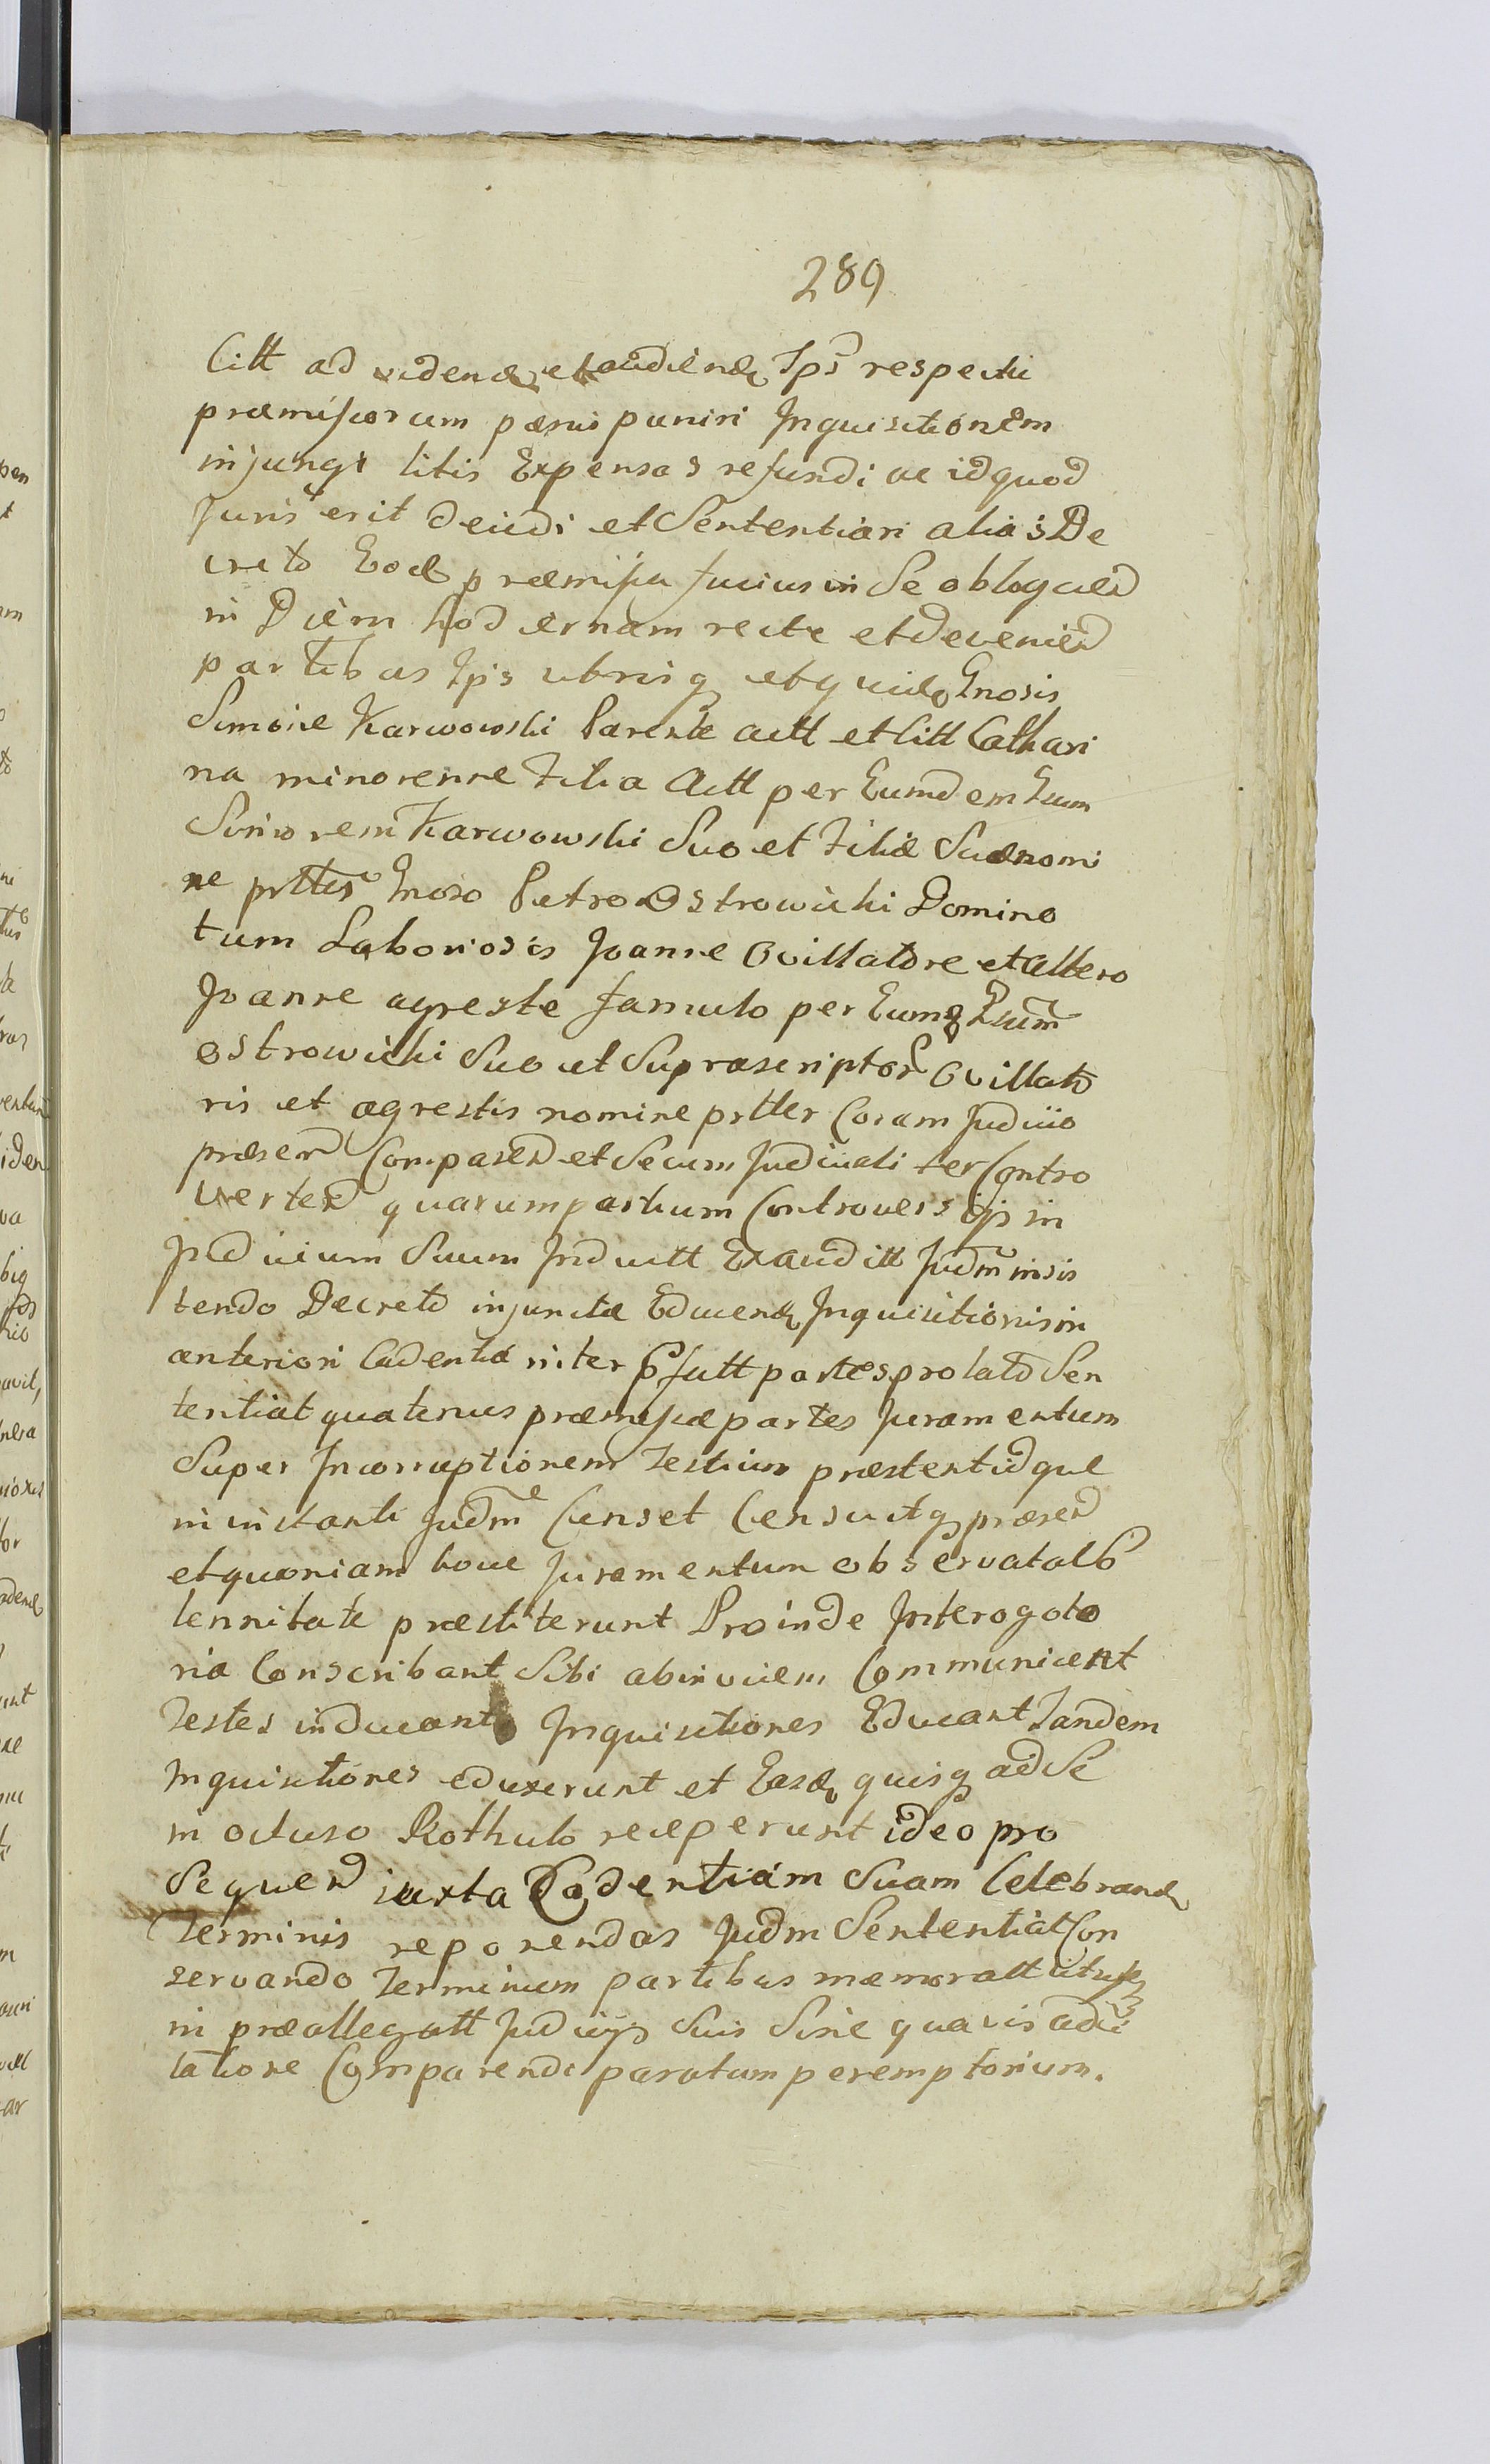 289
Citt ad videnđ et audienđ Ips respectu
præmissorum pænis puniri Inquisitionem
injungi litis Expensas refundi ac idquod
Juris erit deiudi et Sententiari alias De
creto Eodem præmissa fusius in Se obloquen
in Diem hodiernam recte et devenien
partibus Ips utrisq et quidem Gnosis
Simone Karwowski Parente actt et Citt Cathari
na minorenne Filia Actt per Eumdem Gnum
Simonem Karwowski Suo et Filiæ Suæ nomi
ne prttes Gnoso Petro Ostrowicki Domino
tum Laboriosis Joanne Ovillatore et altero
Joanne agreste famulo per Eumd Gsum
Ostrowicki Suo et Suprascriptor Ovillato
ris et agrestis nomine prtter Coram Judicio
præsen Comparen et Secum Judicialiter Contro
verten quarum partium Controversijs in
Judicium Suum Inductt Exauditt Judm insis
tendo Decreto injunctæ Educend Inquisitionis in
anteriori Cadentia inter pfatt partes prolato Sen
tentiat quatenus præmissæ partes Juramentum
Super Incorruptionem Testium præstent idque
in instanti Judm Censet Censuitq præsen
et quoniam hocce Juramentum observata So
lennitate præstiterunt Proinde Interogato
ria Conscribant Sibi abinvicem Communicent
Testes inducant Inquisitiones Educant Tandem
Inquisitiones eduxerunt et Easd quisq ad Se
in ocluso Rothulo receperunt ideo pro
Sequen iuxta Cadentiam Suam Celebrand
Terminis reponendas Judm Sententiat Con
servando Terminum partibus memoratt utrisq
in præallegatt Judicijs Suis Sine quavis adci
tatione Comparendi paratum peremptorium.